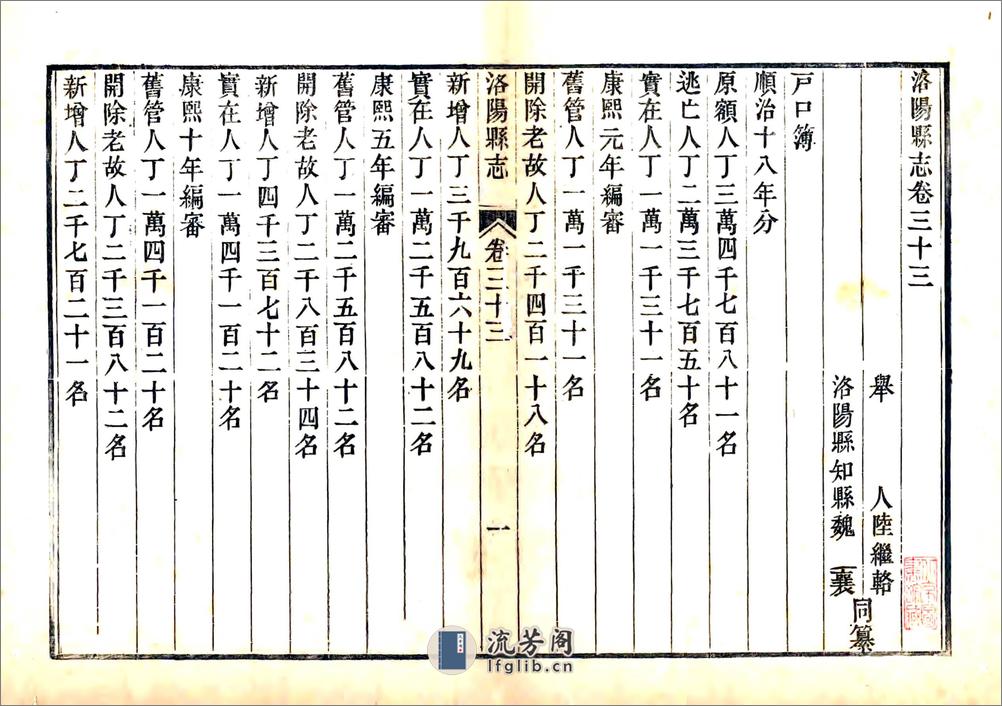 洛陽縣志卷三十三
舉人陸繼輅
洛陽縣知縣魏襄
同纂
戸口簿
順治十八年分
原額人丁三萬四千七百八十一名
逃亡人丁二萬三千七百五十名
實在人丁一萬一千三十一名
康熙元年編審
舊管人丁一萬一千三十一名
開除老故人丁二千四百一十八名
洛陽縣志
卷三十三
一
新增人丁三千九百六十九名
實在人丁一萬二千五百八十二名
康熙五年編審
舊管人丁一萬二千五百八十二名
開除老故人丁二千八百三十四名
新增人丁四千三百七十二名
實在人丁一萬四千一百二十名
康熙十年編審
舊管人丁一萬四千一百二十名
開除老故人丁二千三百八十二名
新增人丁二千七百二十一名
流芳阁
lfglib.cn